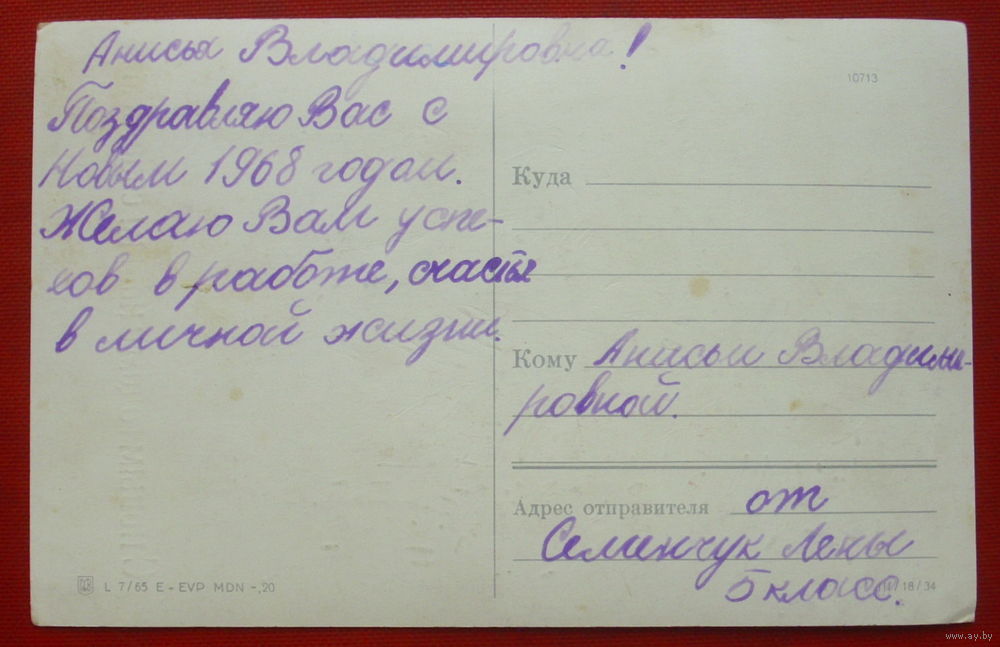 Анисья Владимировна!
Поздравляю Вас с
Новым 1968 годом.
Желаю Вам успе-
хов в работе, счастья
в личной жизни.
10713
Куда
Кому Анисьи Владими-
ровной.
Адрес отправителя от
Семенчук Лены
5 класс.
L 7/65 E - EVP MDN -,20
18/34
www.ay.by